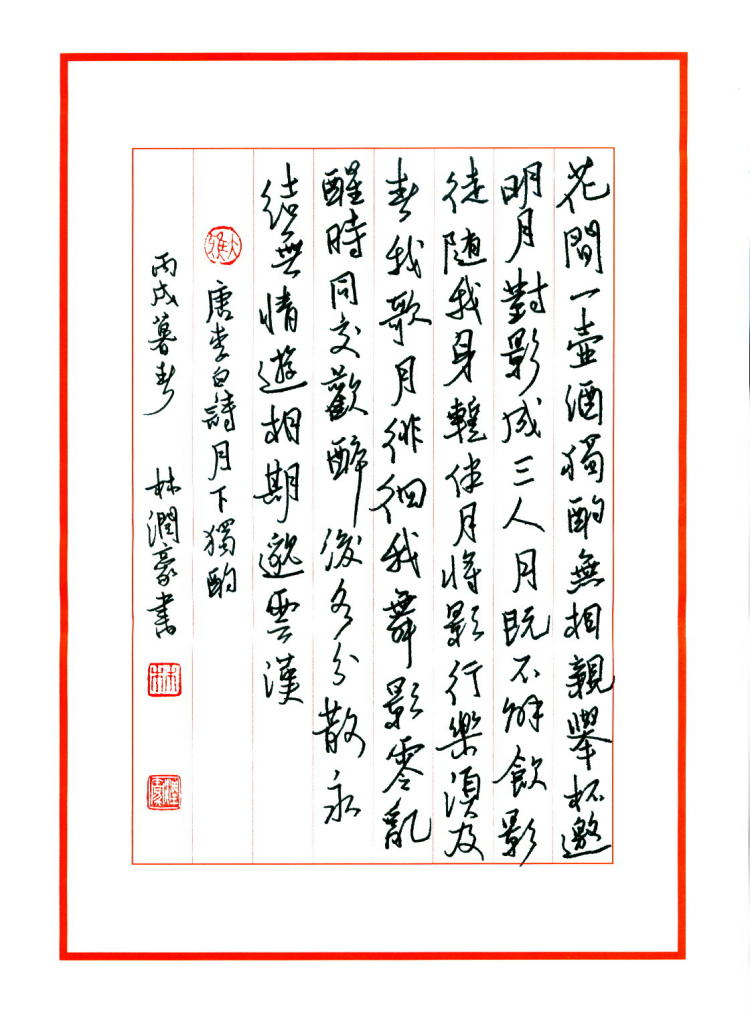 花間一壺酒獨酌無相親舉杯邀
明月對影成三人月既不解飲影
徒隨我身暫伴月將影行樂須及
春我歌月徘徊我舞影零亂
醒時同交歡醉後各分散永
結無情遊相期邈雲漢
唐李白詩月下獨酌
丙戌暮春 林潤豪書